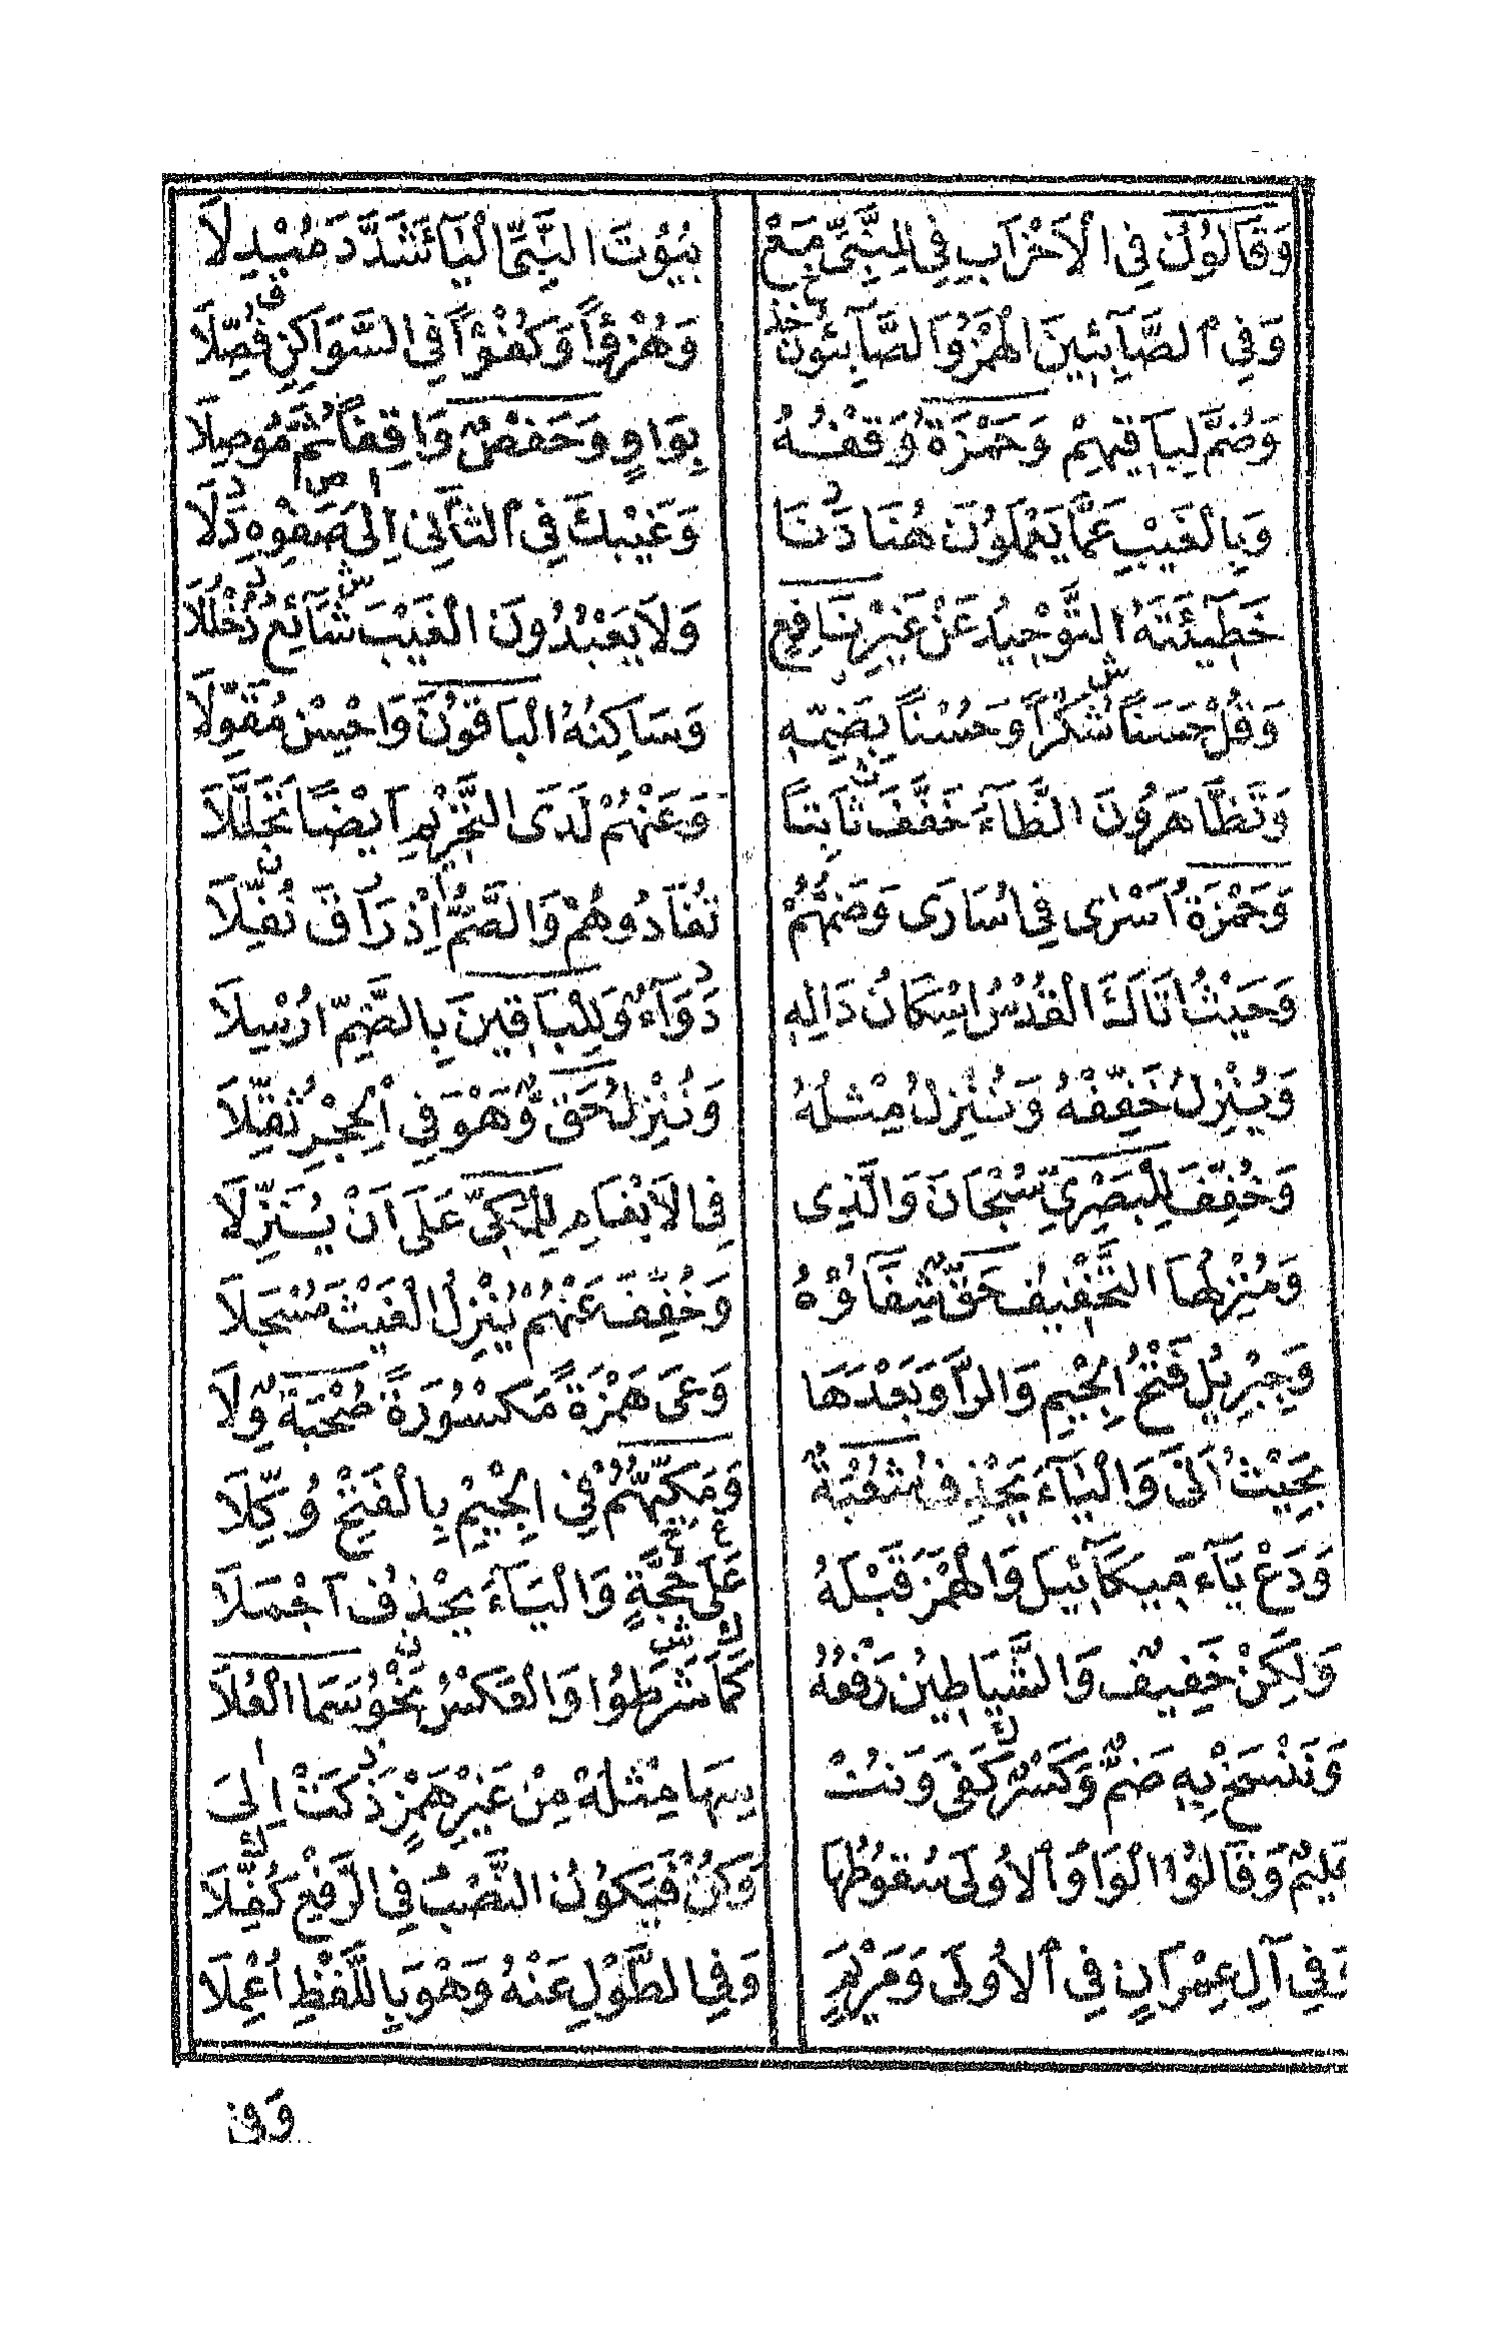 وَقَالُونُ فِي الْاَحْزَابِ فِي لِلنَّبِيِّ مَعْ بُيُوتَ النَّبِيِّ الْيَآءَ شَدَّدَ مُبْدِلَا
وَفِي الصَّابِئِينَ الْهَمْزُ وَالصَّابِئُونَ خُذْ وَهُزْؤًا وَكُفْؤًا فِي السَّوَاكِنِ فُصِّلَا
وَضُمَّ لِبَاقِيهِمْ وَحَمْزَةُ وَقْفُهُ بِوَاوٍ وَحَفْصٌ وَاقِفًا ثُمَّ مُوصِلَا
وَبِالْغَيْبِ عَمَّا يَعْمَلُونَ هُنَا دَنَا وَغَيْبُكَ فِي الثَّانِي اِلَى صَفْوِهِ دَلَا
خَطِيئَتُهُ التَّوْحِيدُ عَنْ غَيْرِ نَافِعٍ وَلَا يَعْبُدُونَ الْغَيْبَ شَايَعَ دُخْلُلَا
وَقُلْ حَسَنًا شُكْرًا وَحُسْنًا بِضَمِّهِ وَسَاكِنُهُ الْبَاقُونَ وَاحْسِنْ مُقَوِّلَا
وَتَظَّاهَرُونَ الظَّآءُ خُفِّفَ ثَابِتًا وَعَنْهُمْ لَدَى التَّحْرِيمِ اَيْضًا تَحَلَّلَا
وَحَمْزَةُ اَسْرٰى فِي اُسَارَى وَضَمُّهُمْ تُفَادُوهُمُ وَالضَّمُّ اِذْ رَاقَ نُفِّلَا
وَحَيْثُ اَتَاكَ الْقُدْسُ اِسْكَانُ دَالِهِ دَوَآءٌ وَلِلْبَاقِينَ بِالضَّمِّ اُرْسِلَا
وَيُنْزِلُ خَفِّفْهُ وَتُنْزِلُ مِثْلُهُ وَنُنْزِلُ حَقٌّ وَهْوَ فِي الْحِجْرِ ثُقِّلَا
وَخُفِّفَ لِلْبَصْرِيِّ سُبْحَانَ وَالَّذِى فِي الْاَنْعَامِ لِلْمَكِّيِّ عَلَى اَنْ يُنَزِّلَا
وَمُنْزِلُهَا التَّخْفِيفُ حَقٌّ شِفَاؤُهُ وَخُفِّفَ عَنْهُمْ يُنْزِلُ الْغَيْثَ مُسْجَلَا
وَجِبْرِيلُ فَتْحُ الْجِيمِ وَالرَّا وَبَعْدَهَا وَعَى هَمْزَةً مَكْسُورَةً صُحْبَةٌ وِلَا
بِحَيْثُ اَتَى وَالْيَآءَ يَحْذِفُ شُعْبَةٌ وَمَكِّيُّهُمْ فِي الْجِيمِ بِالْفَتْحِ وُكِّلَا
وَدَعْ يَآءَ مِيكَآئِيلَ وَالْهَمْزَ قَبْلَهُ عَلَى حُجَّةٍ وَالْيَآءُ يُحْذَفُ اَجْمَلَا
وَلٰكِنْ خَفِيفٌ وَالشَّيَاطِينُ رَفْعُهُ كَمَا شَرَطُوا وَالْعَكْسُ نَحْوٌ سَمَا الْعُلَا
وَنَنْسَخْ بِهِ ضَمٌّ وَكَسْرٌ كَفَى وَنُنْ سِهَا مِثْلُهُ مِنْ غَيْرِ هَمْزٍ ذَكَتْ اِلَى
عَلِيمٌ وَقَالُوا الْوَاوُ الْاُولَى سُقُوطُهَا وَكُنْ فَيَكُونُ النَّصْبُ فِي الرَّفْعِ كُفِّلَا
وَفِي آلِ عِمْرَانٍ فِي الْاُولَى وَمَرْيَمٍ وَفِي الطَّوْلِ عَنْهُ وَهْوَ بِاللَّفْظِ اُعْمِلَا
وَفِي